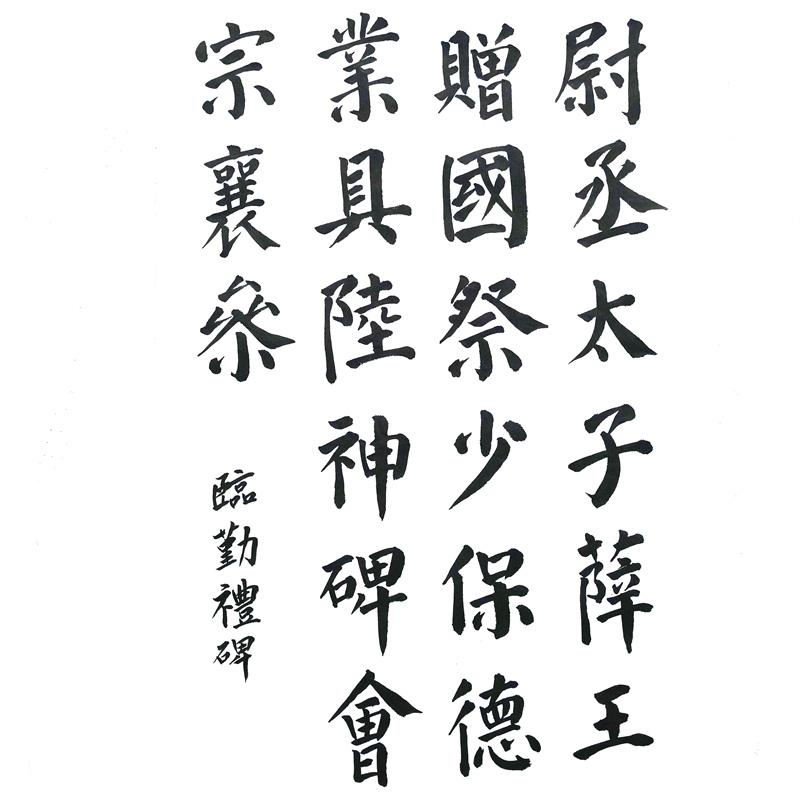 尉丞太子薛王
贈國祭少保德
業具陸神碑會
宗襄參
臨勤禮碑